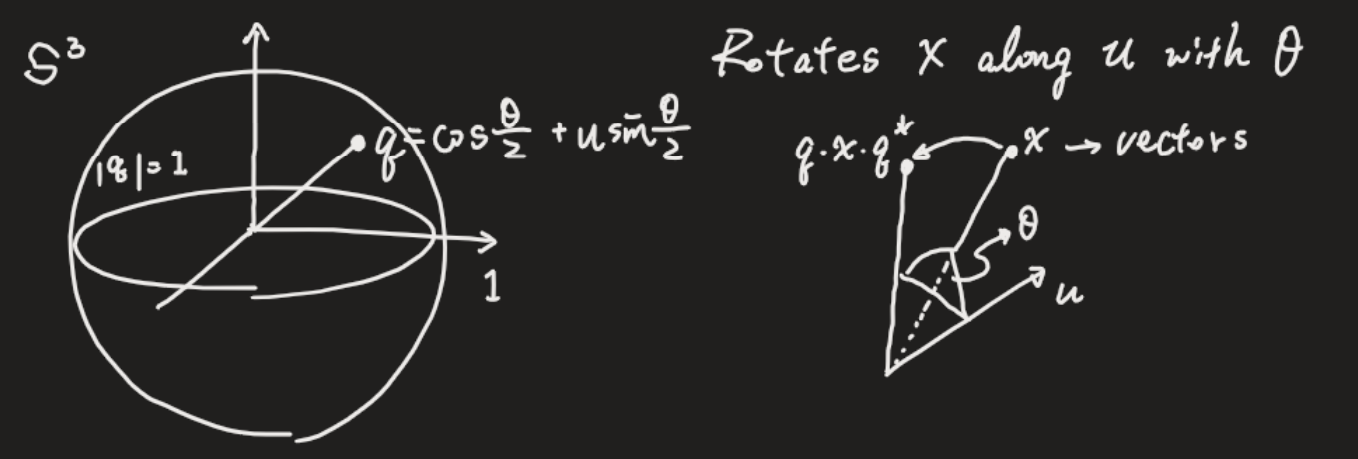 S³
|q|=1
q = cos θ/2 + u sin θ/2
1
Rotates x along u with θ
q·x·q*
x → vectors
θ
u